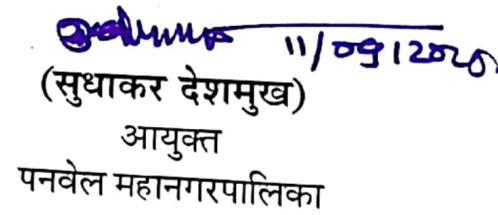 11/09/2020
(सुधाकर देशमुख)
आयुक्त
पनवेल महानगरपालिका